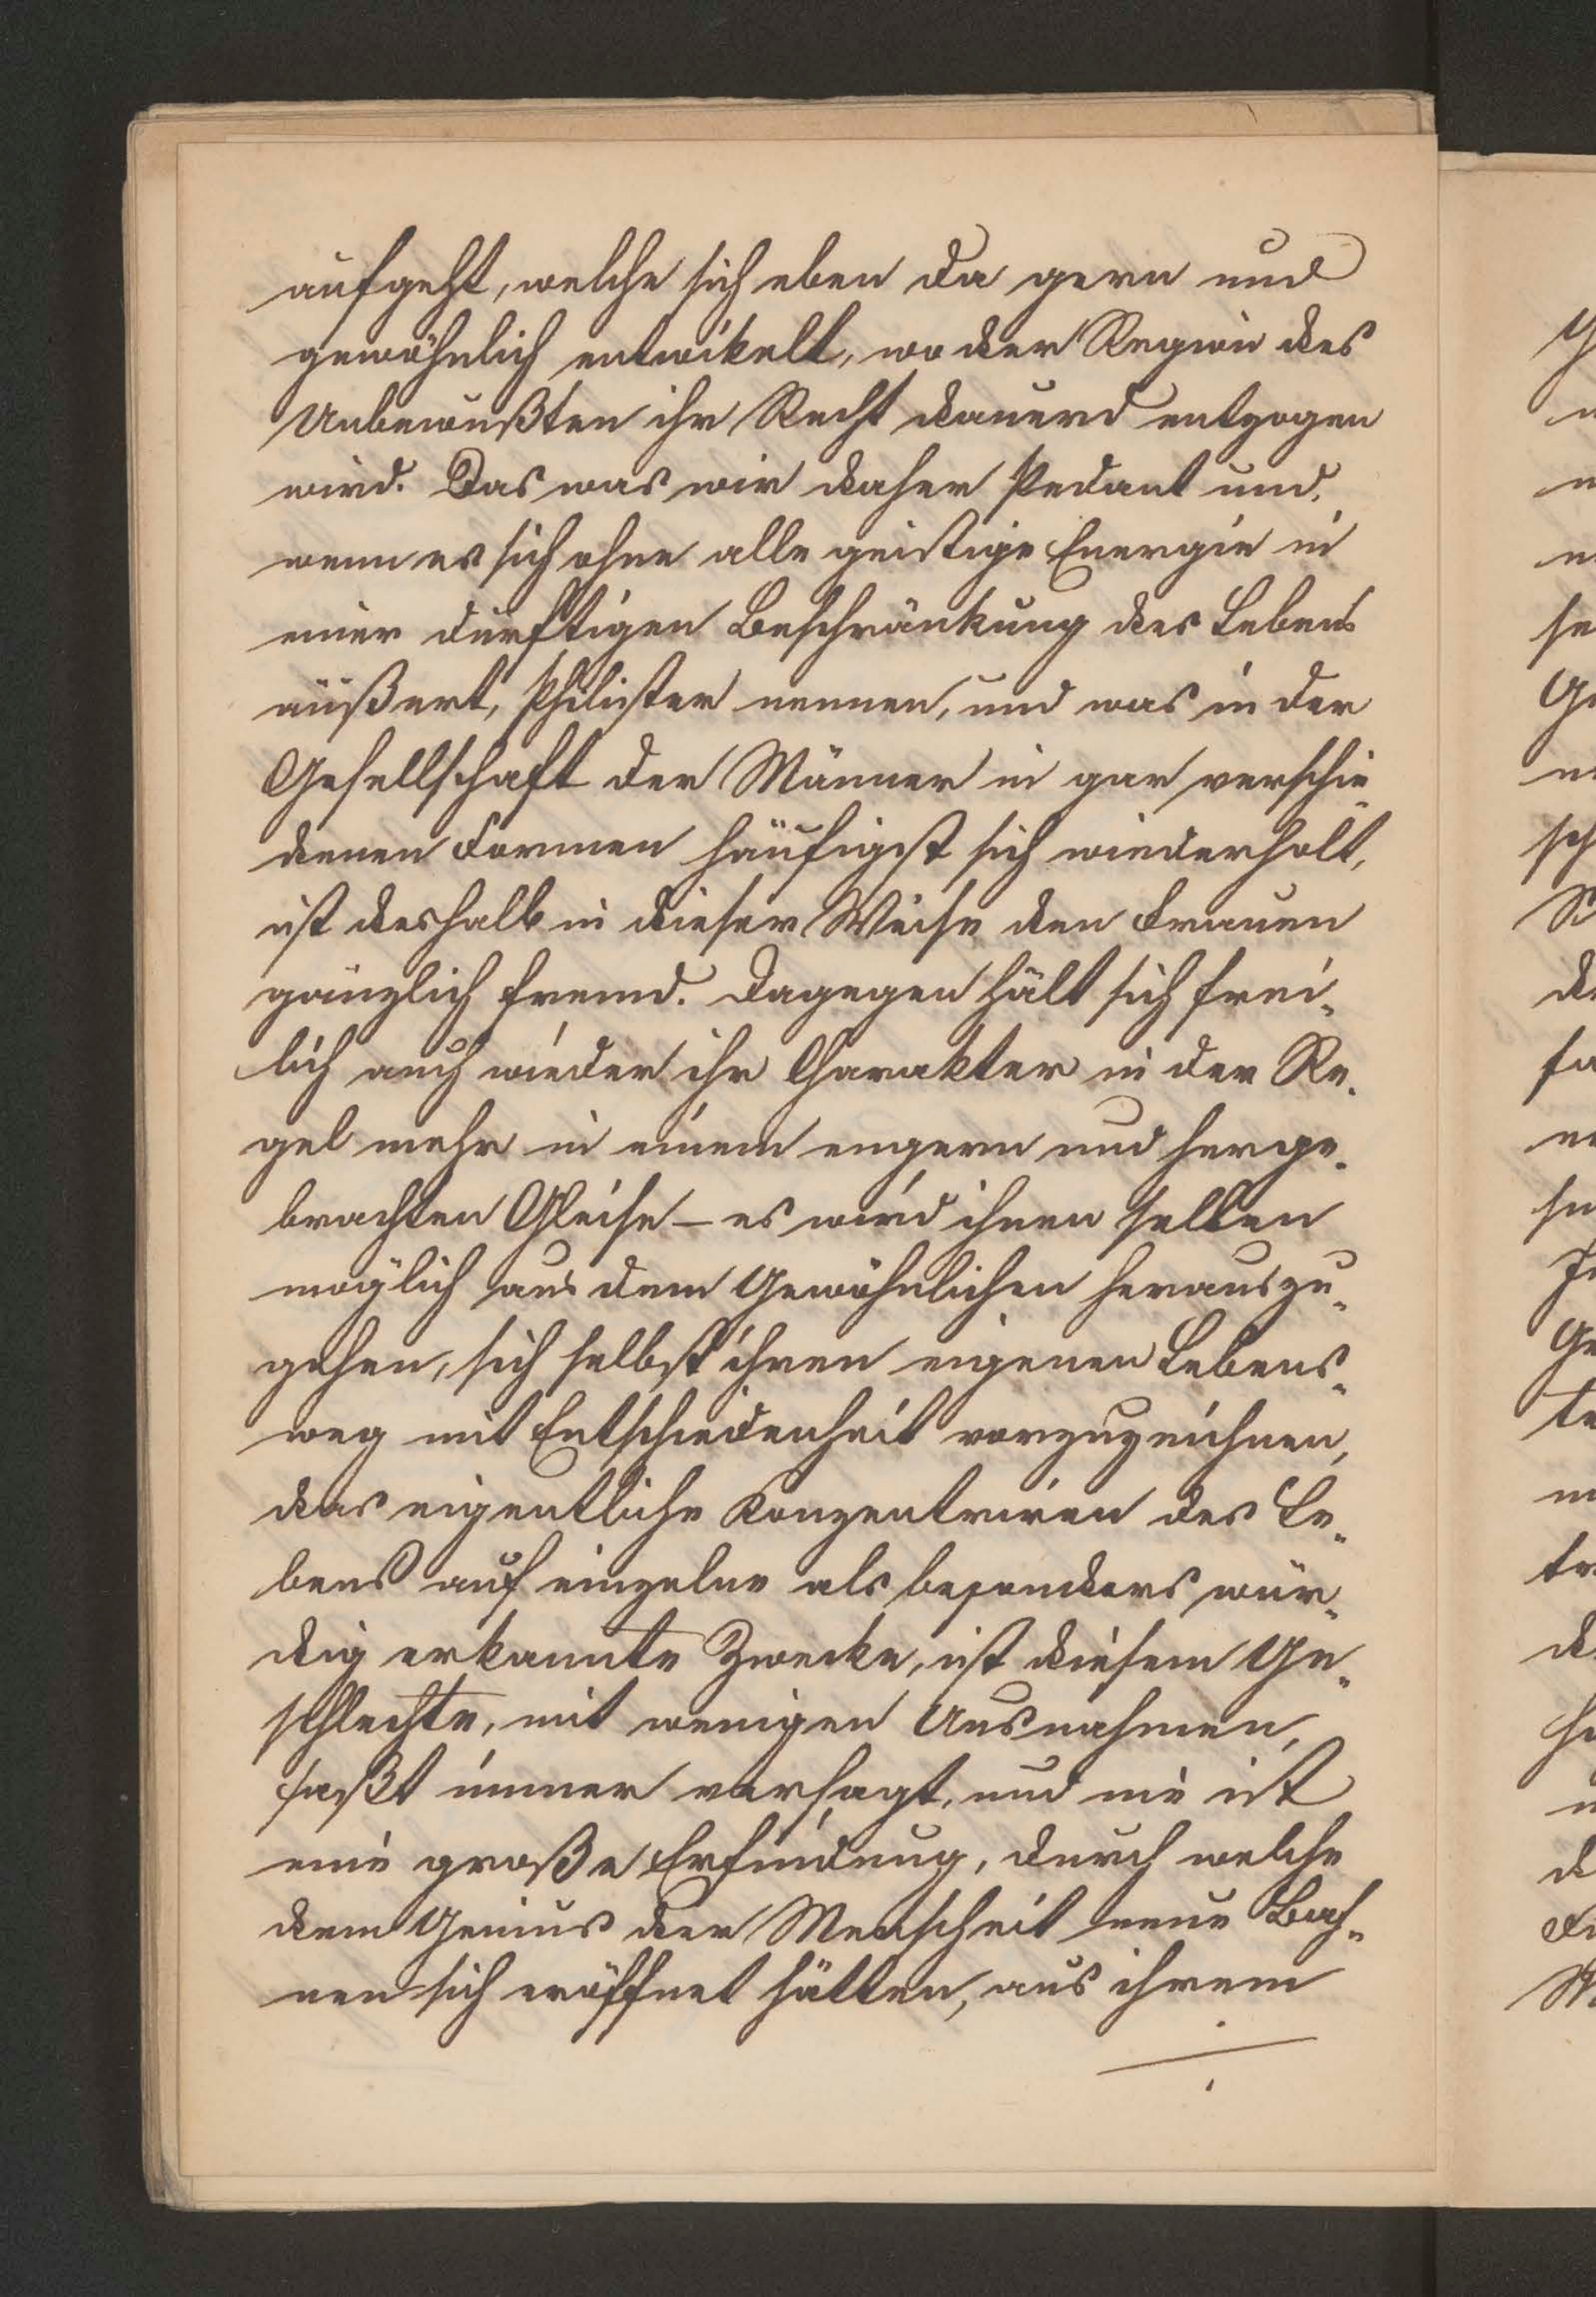 aufgeht, welche sich eben da gern und
gewöhnlich entwikelt, wo der Region des
Unbewußten ihr Recht dauernd entzogen
wird. Das was wir daher Pedant und,
wenn es sich ohne alle geistige Energie in
einer dürftigen Beschränkung des Lebens
äußert, Philister nennen, und was in der
Gesellschaft der Männer in gar verschie-
denen Formen häufigst sich wiederholt,
ist deshalb in dieser Weise den Frauen
gänzlich fremd. Dagegen hält sich frei-
lich auch wieder ihr Charakter in der Re-
gel mehr in einem engern und herge-
brachten Gleise – es wird ihnen selten
möglich aus dem Gewöhnlichen herauszu-
gehen, sich selbst ihren eigenen Lebens-
weg mit Entschiedenheit vorzuzeichnen,
das eigentliche Konzentriren des Le-
bens auf einzelne als besonders wür-
dig erkannte Zwecke, ist diesem Ge-
schlechte, mit wenigen Ausnahmen,
faßt immer versagt, und nie ist
eine große Erfindung, durch welche
dem Genius der Menschheit neue Bah-
nen sich eröffnet hätten, aus ihrem